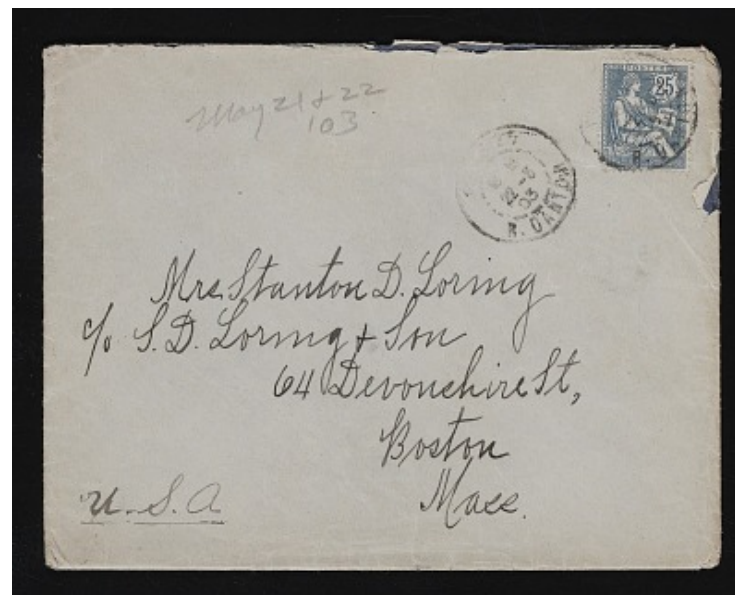 May 21 & 22
103
POSTES
25
22 -5
03
R. DANTON
Mrs. Stanton D. Loring
c/o S. D. Loring & Son
64 Devonshire St,
Boston
Mass.
U.S.A